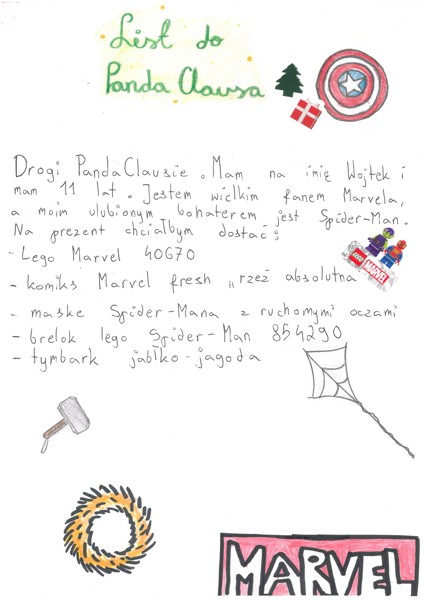 List do
Panda Clausa
Drogi PandaClausie. Mam na imię Wojtek i
mam 11 lat. Jestem wielkim fanem Marvela,
a moim ulubionym bohaterem jest Spider-Man.
Na prezent chciałbym dostać:
- Lego Marvel 40670
- komiks Marvel fresh „rzeź absolutna
- maske Spider-Mana z ruchomymi oczami
- brelok lego Spider-Man 854290
- tymbark jabłko-jagoda
LEGO
MARVEL
MARVEL